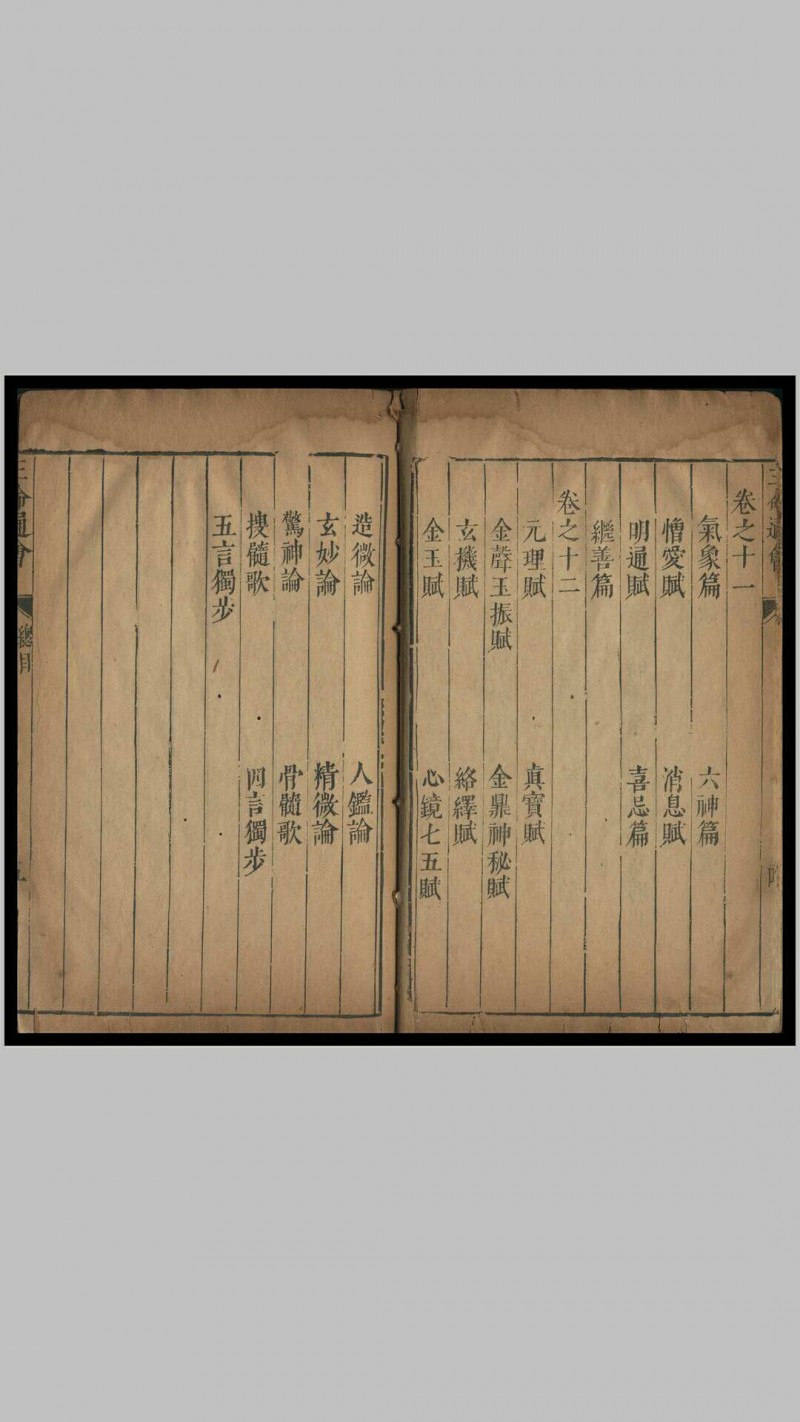 三命通會
卷之十一
氣象篇 六神篇
憎愛賦 消息賦
明通賦 喜忌篇
繼善篇
卷之十二
元理賦 真寶賦
金聲玉振賦 金鼎神秘賦
玄機賦 絡繹賦
金玉賦 心鏡七五賦
造微論 人鑑論
玄妙論 精微論
驚神論 骨髓歌
搜髓歌 四言獨步
五言獨步
三命通會 總目